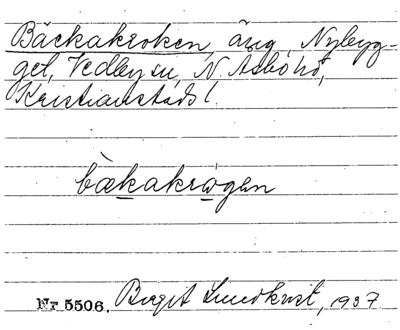 Bäckakroken, äng, Nybyg-
get, Vedby sn, N. Åsbo hd,
Kristianstads l.
bækakrogen
Nr 5506. Birgit Lundkvist, 1937